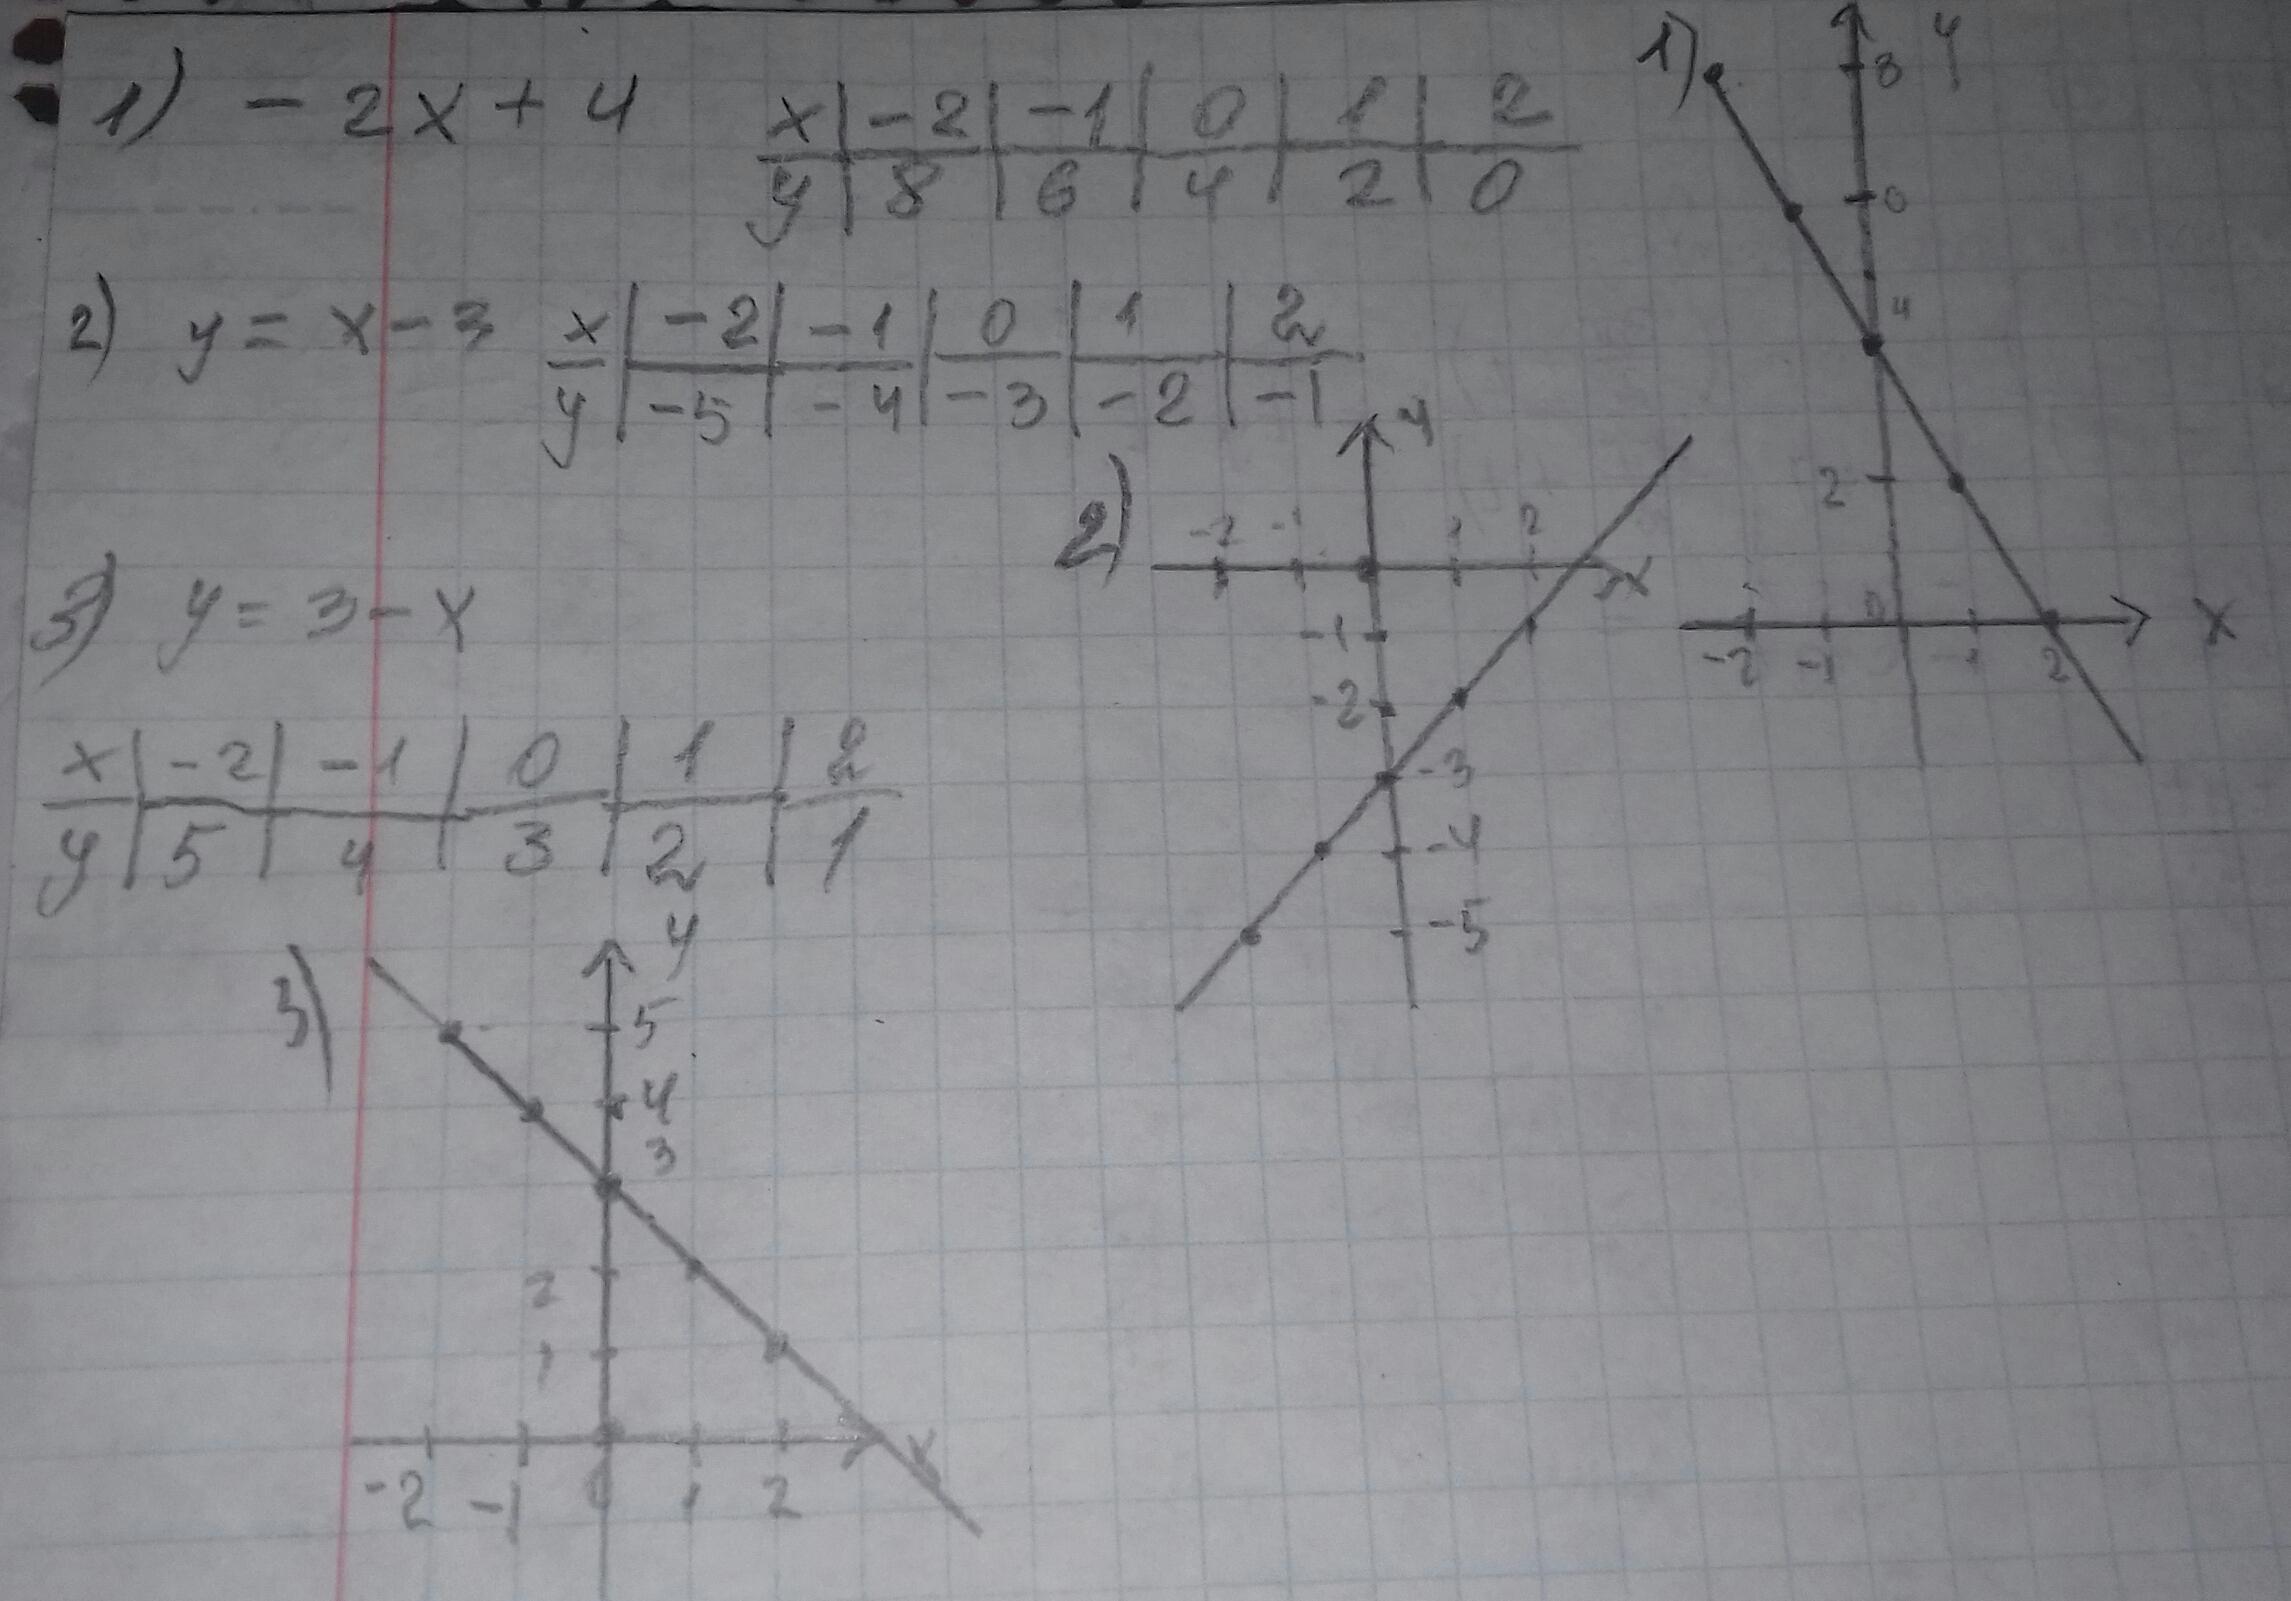 1) - 2x + 4
x | -2 | -1 | 0 | 1 | 2
y | 8 | 6 | 4 | 2 | 0
1)
y
8
6
4
2
0
-2 -1 1 2
x
2) y = x - 3
x | -2 | -1 | 0 | 1 | 2
y | -5 | -4 | -3 | -2 | -1
2)
y
-2 -1 1 2
x
-1
-2
-3
-4
-5
3) y = 3 - x
x | -2 | -1 | 0 | 1 | 2
y | 5 | 4 | 3 | 2 | 1
3)
y
5
4
3
2
1
x
-2 -1 0 1 2